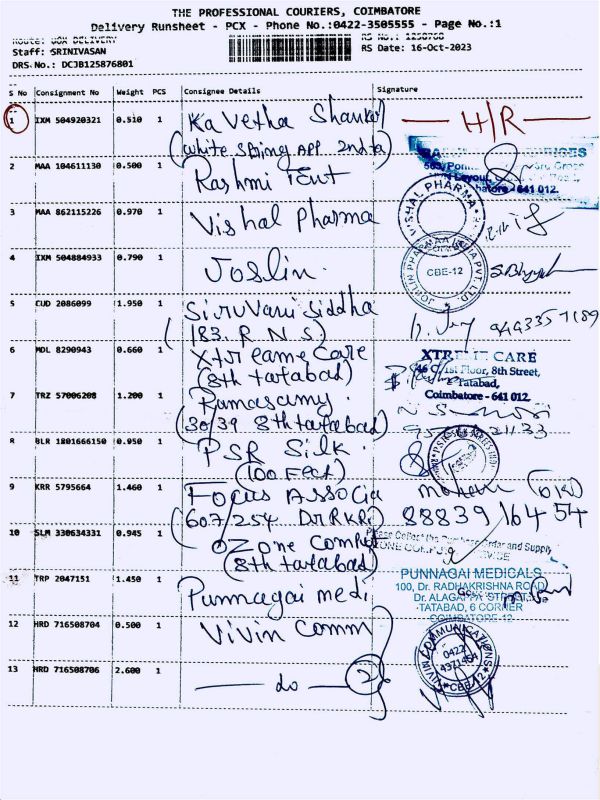 THE PROFESSIONAL COURIERS, COIMBATORE
Delivery Runsheet - PCX - Phone No.:0422-3505555 - Page No.:1
Route: DELIVERY
Staff: SRINIVASAN
RS Date: 16-Oct-2023
DRS No.: DCJB125876801
S No Consignment No Weight PCS Consignee Details Signature
1 IXM 504920321 0.510 1 Kavetha Shankar H/R
(White Spring App 2nd
2 MAA 104611130 0.500 1 Rashmi Tent
641 012.
3 MAA 862115226 0.970 1 Vishal Pharma
VISHAL PHARMA
4 IXM 504884933 0.790 1 Joslin.
CBE-12
5 CUD 2086099 1.950 1 Siruvani Siddha
(183. R N S)
6 MDL 8290943 0.660 1 Xtreame Care
(8th tatabad)
XTREME CARE
1st Floor, 8th Street,
Tatabad,
Coimbatore - 641 012.
7 TRZ 57006208 1.200 1 Ramasamy.
(30/39 8th tatabad)
8 BLR 1801666150 0.950 1 PSR Silk.
(100 Feet)
9 KRR 5795664 1.460 1 Focus Associa
(607/254 Dr RKR)
88839 16454
10 SLM 330634331 0.945 1 OZone Comput
(8th tatabad)
Please Collect the Purchase Order and Supply
11 TRP 2047151 1.450 1 Punnagai medi
PUNNAGAI MEDICALS
100, Dr. RADHAKRISHNA ROAD
Dr. ALAGAPPA STREET,
TATABAD, 6 CORNER
COIMBATORE-12
12 HRD 716508704 0.500 1 Vivin Comm
VIVIN COMMUNICATIONS
0422
4371464
CBE-12
13 HRD 716508706 2.600 1 — do — 2